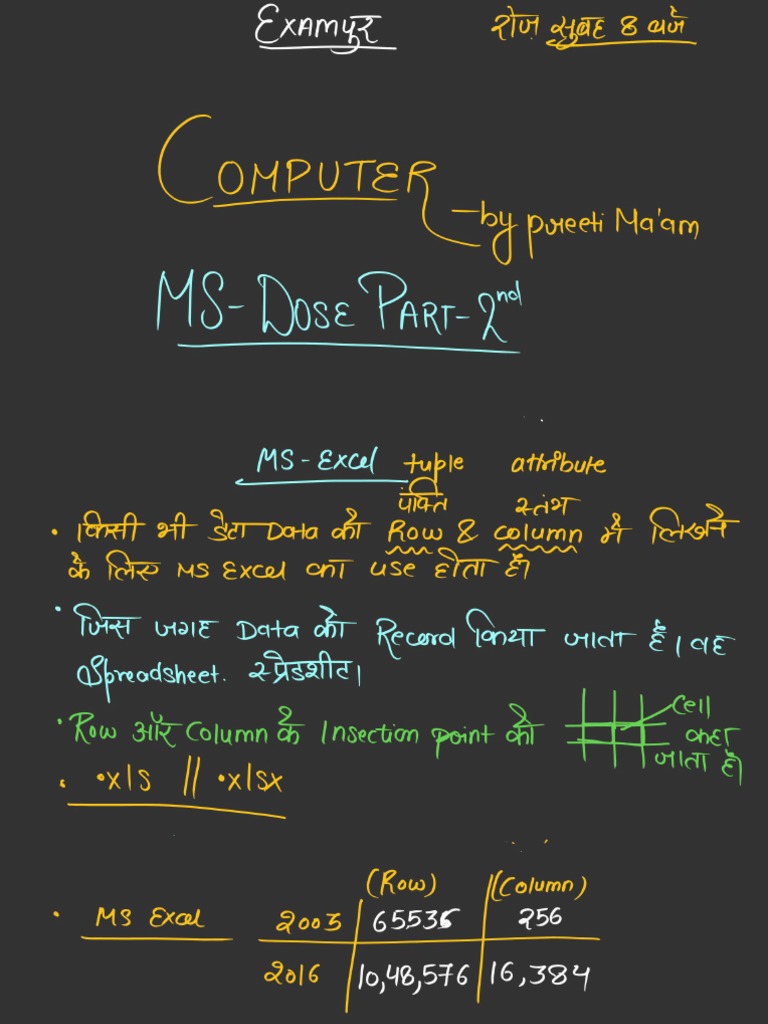 EXAMपुर रोज़ सुबह 8 बजे
COMPUTER
-by Preeti Ma'am
MS-DOSE PART-2nd
MS-Excel tuple attribute
पंक्ति स्तंभ
• किसी भी डेटा Data को Row & column में लिखने
के लिए MS Excel का use होता है।
• जिस जगह Data को Record किया जाता है। वह
Spreadsheet. स्प्रेडशीट।
• Row और Column के Insection point को Cell
कहा
जाता है।
• .xls || .xlsx
(Row) (Column)
• MS Excel 2003 65536 256
2016 10,48,576 16,384